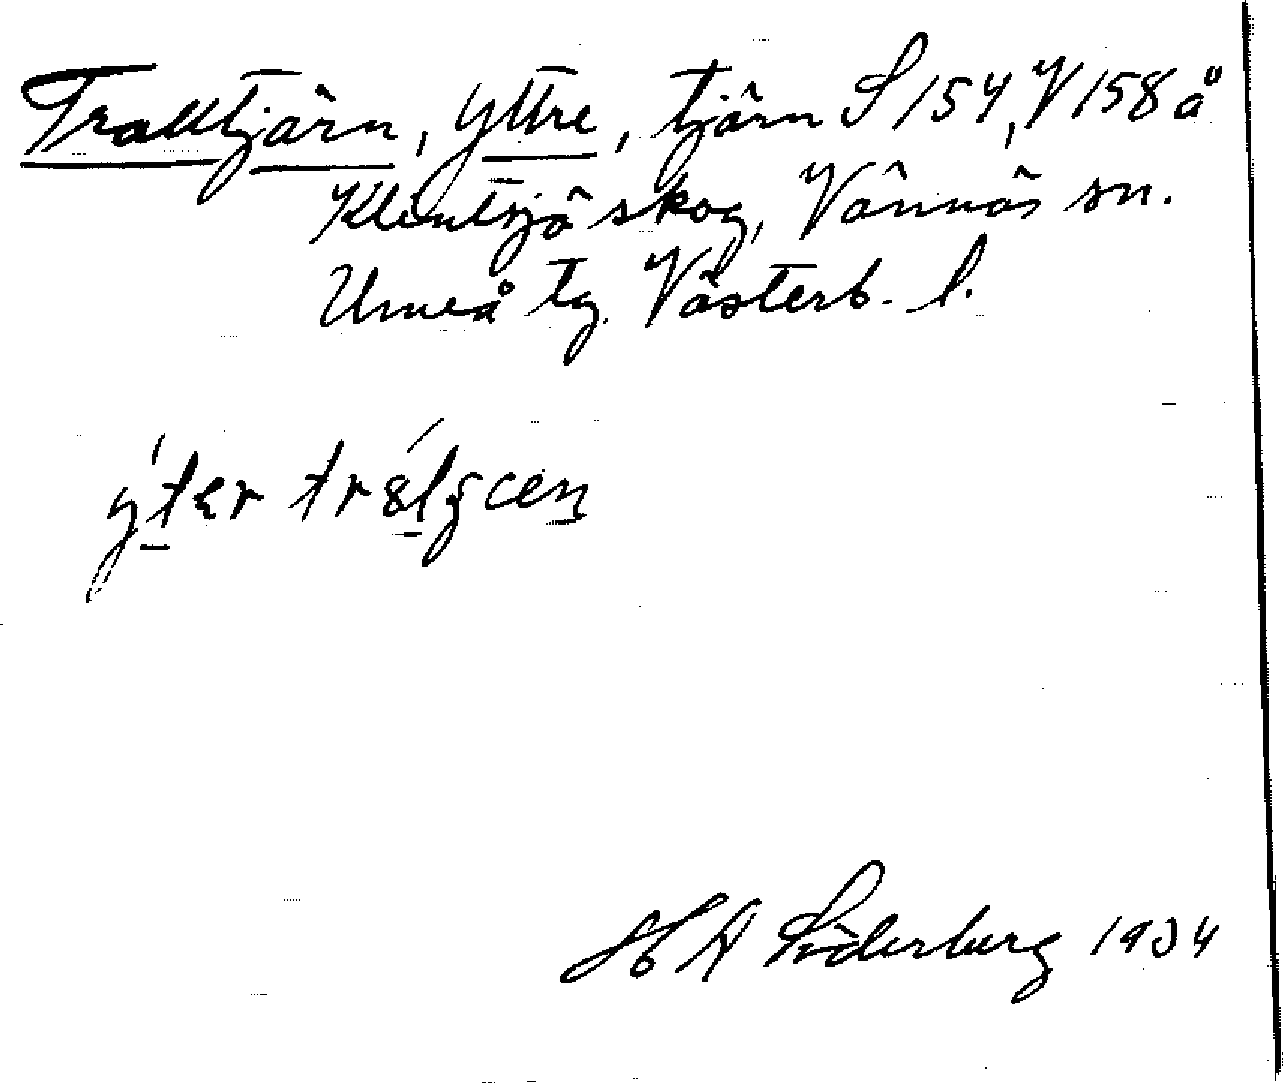 Tralltjärn, Yttre, tjärn S 154, V 158 å
Klintsjö skog, Vännäs sn.
Umeå tg. Västerb. l.
H A Söderberg 1934